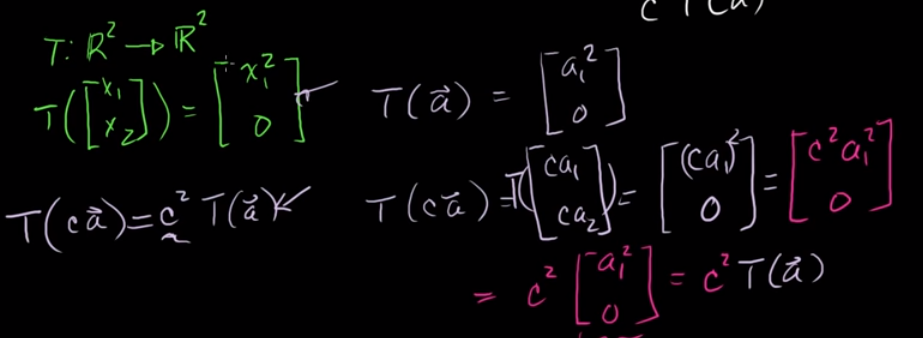 c T(a⃗)
T: ℝ² → ℝ²
T([x₁ x₂]) = [x₁² 0]
T(a⃗) = [a₁² 0]
T(ca⃗) = c² T(a⃗)
T(ca⃗) = T([ca₁ ca₂]) = [(ca₁)² 0] = [c²a₁² 0]
= c² [a₁² 0] = c² T(a⃗)